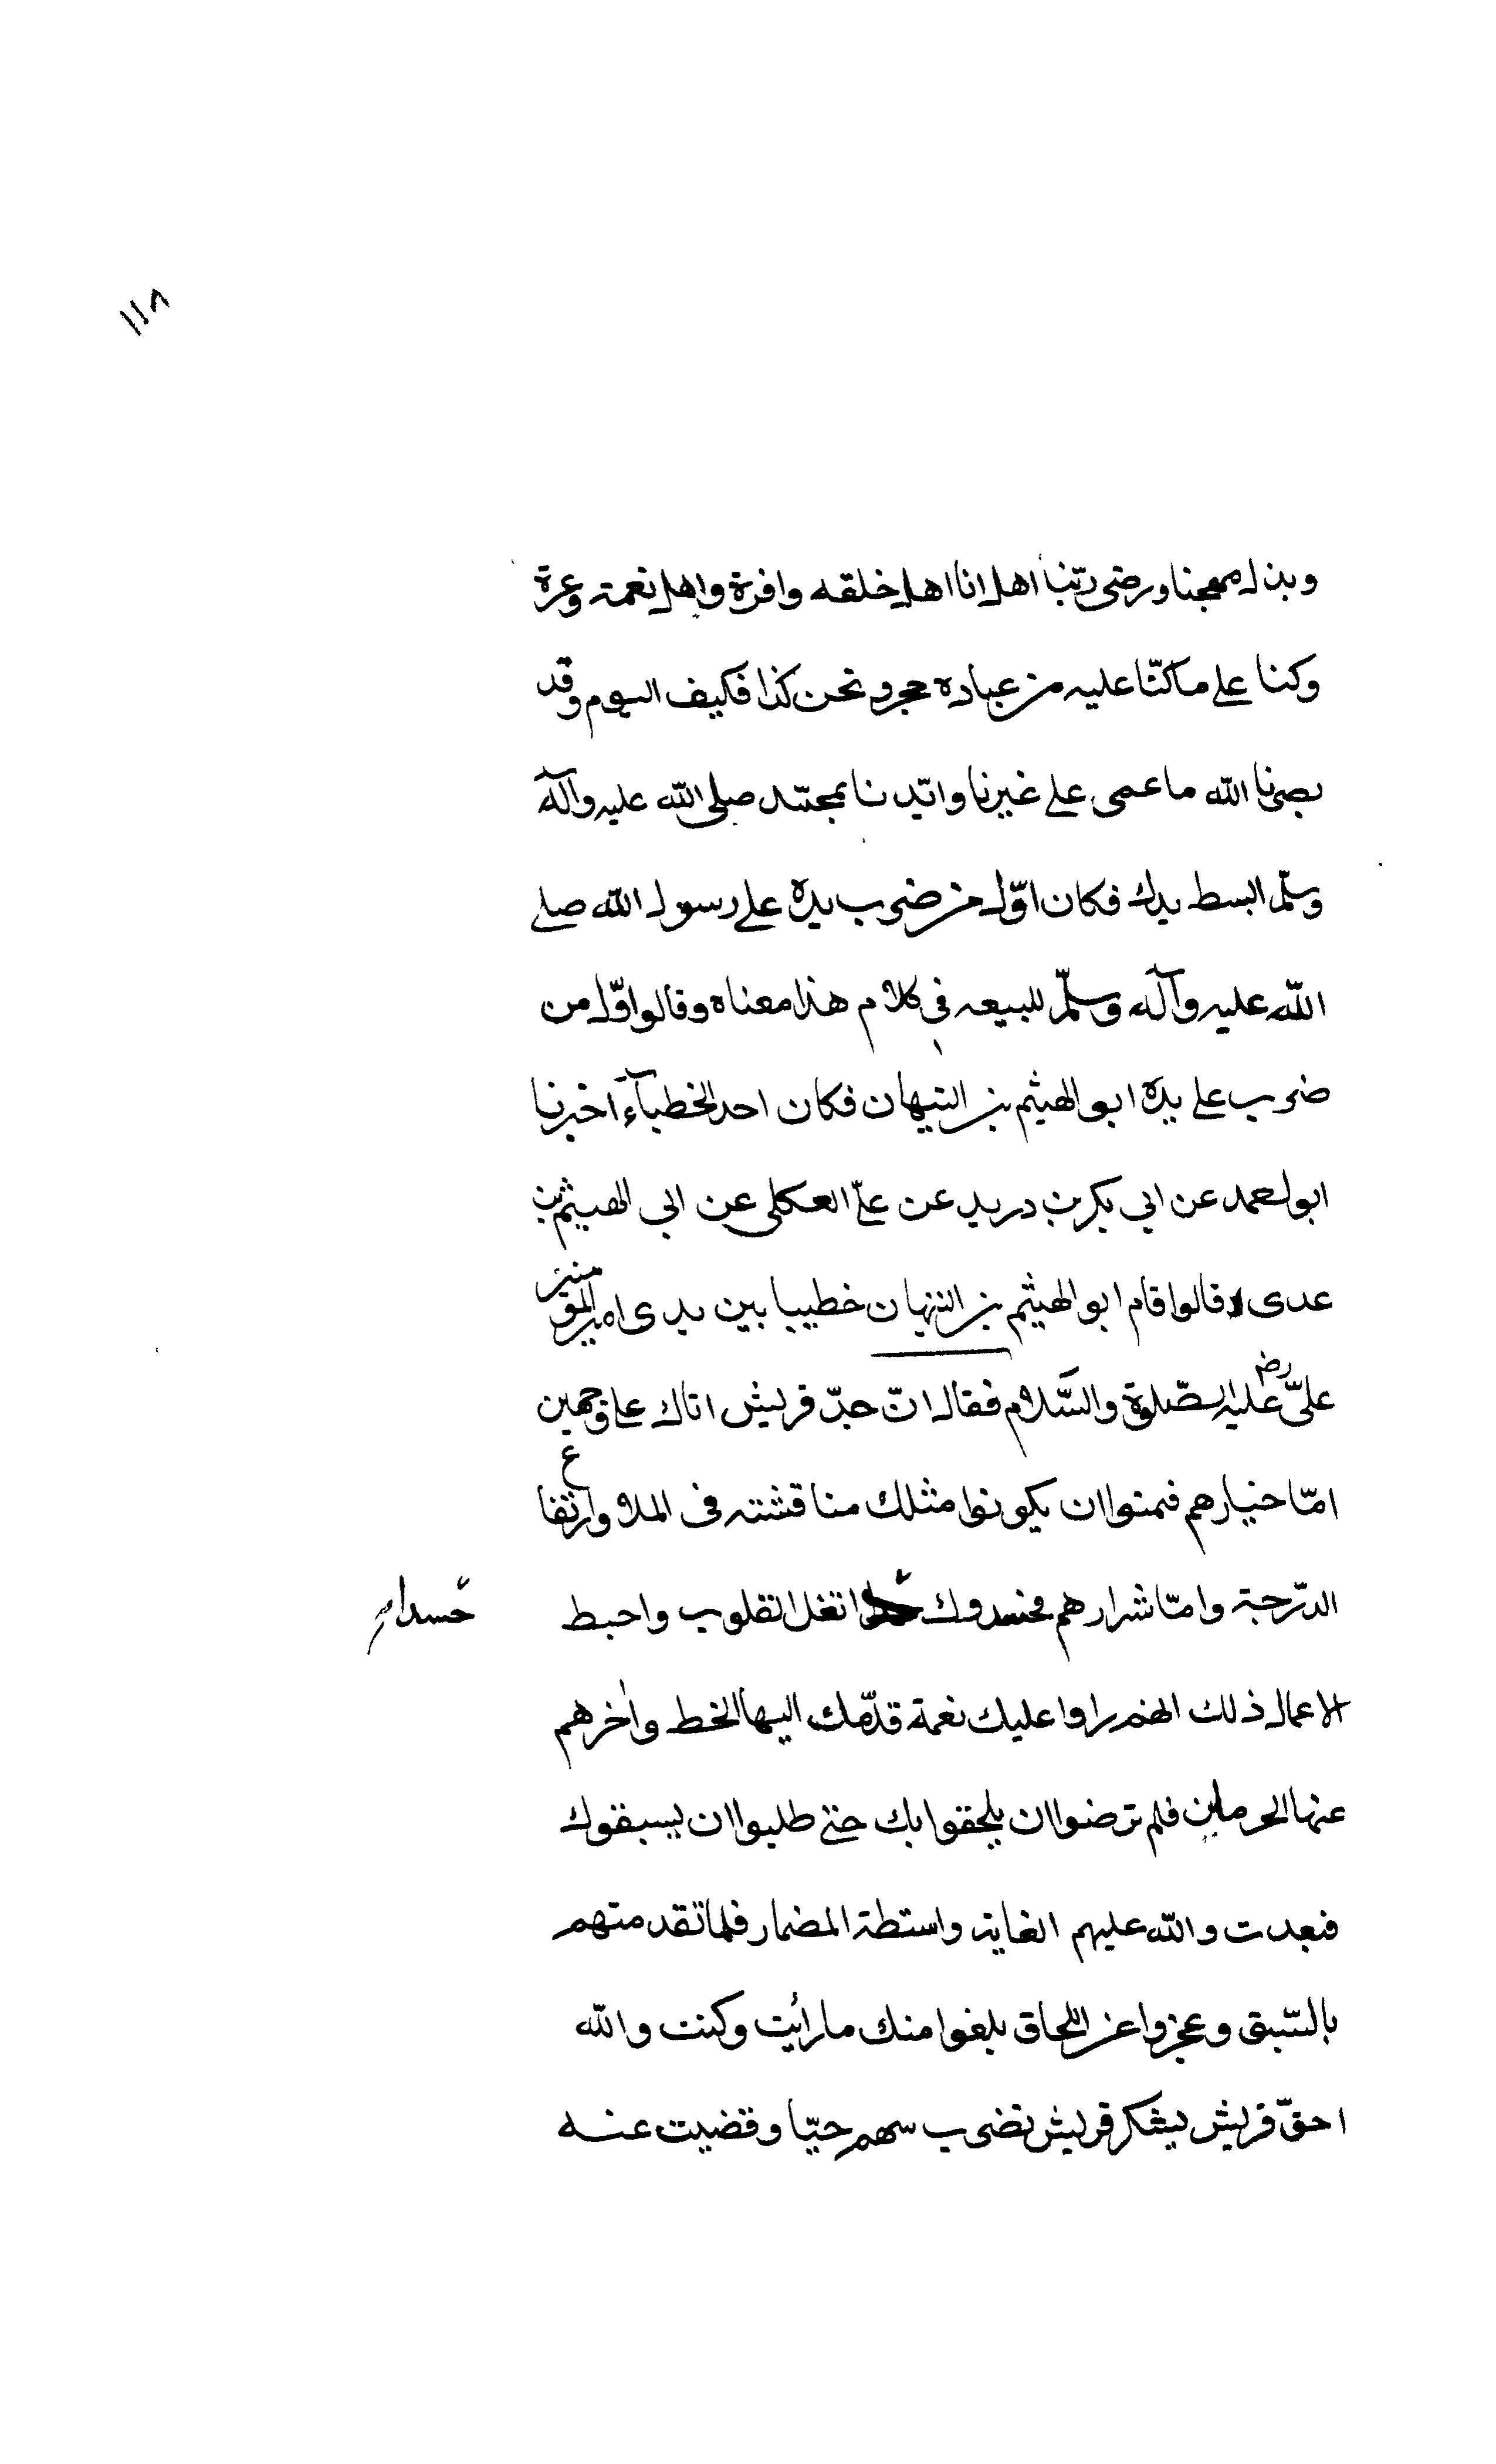 ١١٨
وبذل مهجنا ورضى ربّنا اهل انا اهل خلقه وافرة واهل نعمة وعزة
وكنا على ما كنّا عليه من عباده حجر ونحن كذا فكيف اليوم وقد
بصرنا الله ما عمى على غيرنا وايّدنا بمحمّد صلى الله عليه وآله
وسلّم ابسط يدك فكان اوّل من ضرب يده على رسول الله صلى
الله عليه وآله وسلّم للبيعه فى كلام هذا معناه وقالوا اوّل من
ضرب على يده ابو الهيثم بن التيهان فكان احد الخطبآء آخبرنا
ابو احمد عن ابى بكر بن دريد عن على العكلى عن ابى الهيثم بن
عدى قالوا قام ابو الهيثم بن التيهان خطيبا بين يدى امير المؤمنين
علىّ رض عليه الصّلوة والسّلام فقال انّ حسد قريش اياك على وجهين
امّا خيارهم فتمنوا ان يكونوا مثلك مناقشته فى الملاء وارتفاع
الدّرجة وامّا شرارهم فحسدوك اتغل القلوب واحبط
حسدا
الاعمال ذلك انهم راوا عليك نعمة قدّمك اليها الخط واٰخرهم
عنها الحرمان فلم ترضوا ان يلحقوا بك حتى طلبوا ان يسبقوك
فبعدت والله عليهم الغاية واسقطة المضمار فلما تقدمتهم
بالسّبق وعجزوا عن اللحاق بلغوا منك ما رأيت وكنت والله
احقّ قريش بشكر قريش نضرب سهم حيّا وقضيت عنه